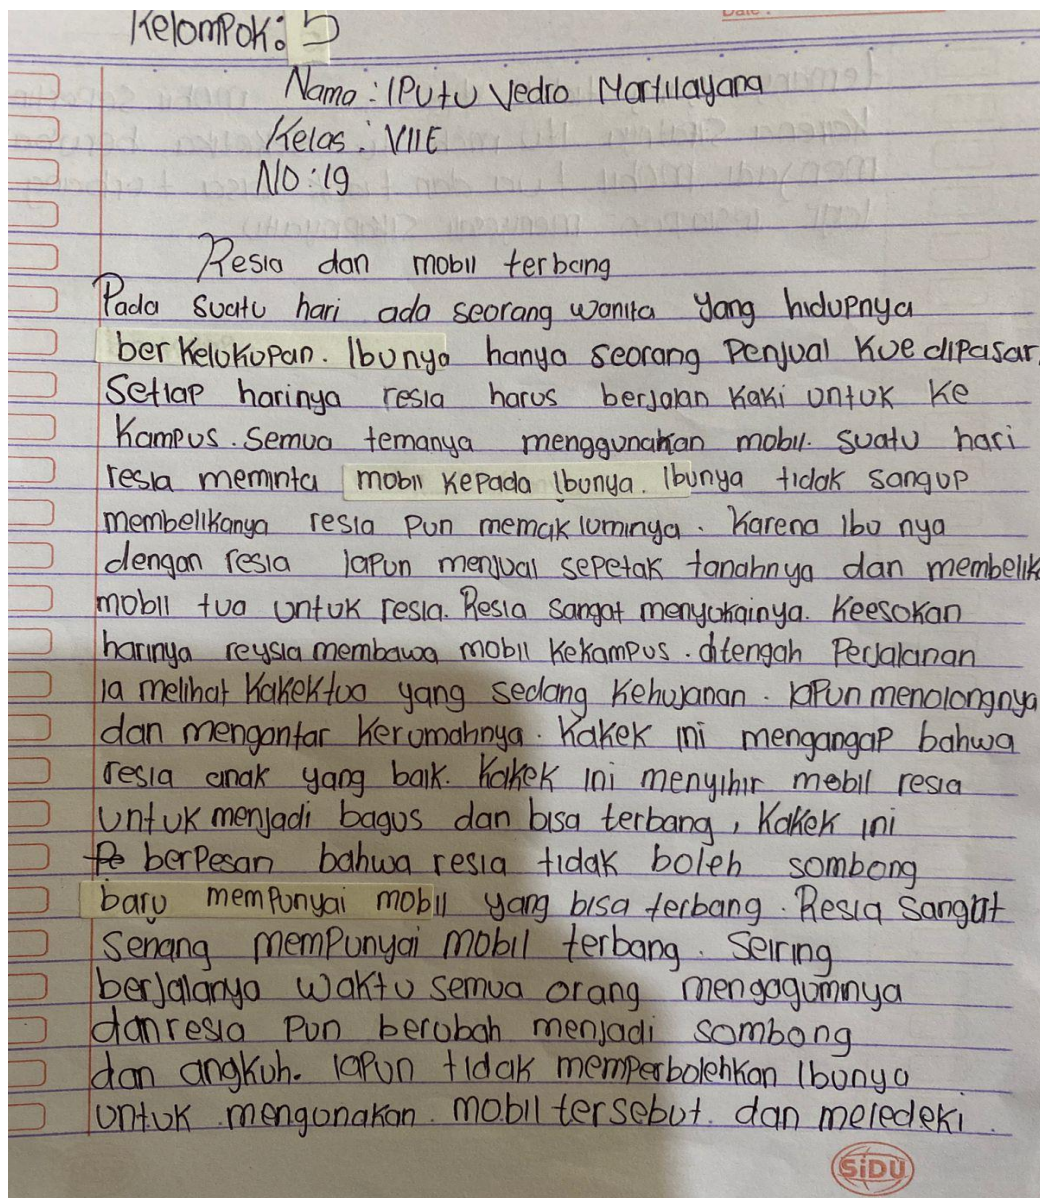 Kelompok: 5
Date:
Nama : I Putu Vedro Martulayana
Kelas : VIIE
NO : 19
Resia dan mobil terbang
Pada suatu hari ada seorang wanita yang hidupnya
berkelukupan. Ibunya hanya seorang Penjual kue dipasar.
Setiap harinya resia harus berjalan kaki untuk ke
kampus. Semua temanya menggunakan mobil. suatu hari
resia meminta mobil kepada Ibunya. Ibunya tidak sangup
membelikanya resia pun memakluminya. Karena Ibu nya
dengan resia Iapun menjual sepetak tanahnya dan membelik
mobil tua untuk resia. Resia sangat menyukainya. Keesokan
harinya reysia membawa mobil kekampus. ditengah Perjalanan
Ia melihat kakektua yang sedang kehujanan. Iapun menolongnya
dan mengantar kerumahnya. Kakek ini mengangap bahwa
resia anak yang baik. Kakek ini menyihir mobil resia
untuk menjadi bagus dan bisa terbang, Kakek ini
berpesan bahwa resia tidak boleh sombong
baru mempunyai mobil yang bisa terbang. Resia sangat
Senang mempunyai mobil terbang. Seiring
berjalanya waktu semua orang mengagumnya
dan resia Pun berubah menjadi sombong
dan angkuh. Iapun tidak memperbolehkan Ibunya
untuk mengunakan mobil tersebut. dan meledeki.
SiDU